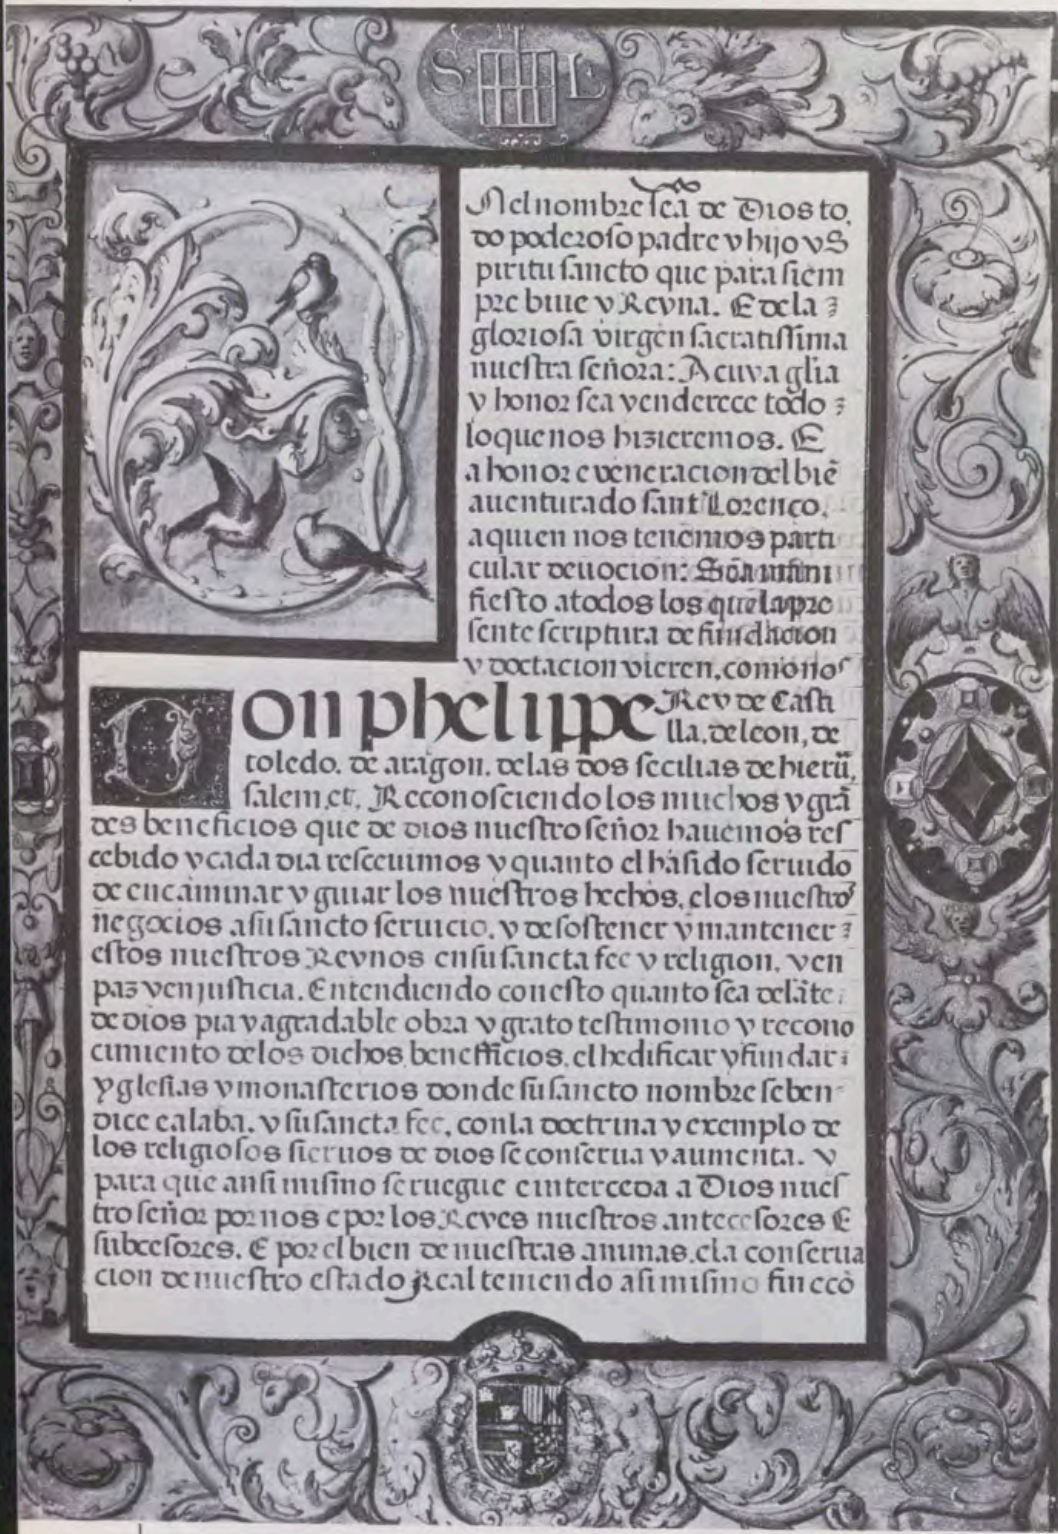 S L
Nel nombre sea de Dios to
do poderoso padre y hijo y S
piritu sancto que para siem
pre biue y Reyna. E de la
gloriosa virgen sacratissima
nuestra señora: A cuya glia
y honor sea y enderece todo
lo que nos hizieremos. E
a honor e veneracion del biē
auenturado sant Lorenço,
a quien nos tenemos parti
cular deuocion: Sea mani
fiesto a todos los que la pre
sente scriptura de fundacion
y doctacion vieren, como nos
Don Phelippe Rey de Casti
lla, de leon, de
toledo, de aragon, de las dos secilias de hierū,
salem, et. Reconosciendo los muchos y grā
des beneficios que de dios nuestro señor hauemos res
cebido y cada dia resceuimos y quanto el hà sido seruido
de encàminar y guiar los nuestros hechos, e los nuestros
negocios a su sancto seruicio, y de sostener y mantener
estos nuestros Reynos en su sancta fee y religion, y en
paz y en justicia. Entendiendo con esto quanto sea delāte
de dios pia y agradable obra y grato testimonio y recono
cimiento de los dichos benefficios, el hedificar y fundar
yglesias y monasterios donde su sancto nombre se ben
dice e alaba, y su sancta fee, con la doctrina y exemplo de
los religiosos sieruos de dios se conserua y aumenta. y
para que ansi mismo se ruegue e interceda a Dios nues
tro señor por nos e por los Reyes nuestros antecesores E
subcesores. E por el bien de nuestras animas, e la conserua
cion de nuestro estado Real teniendo asi mismo fin e cō